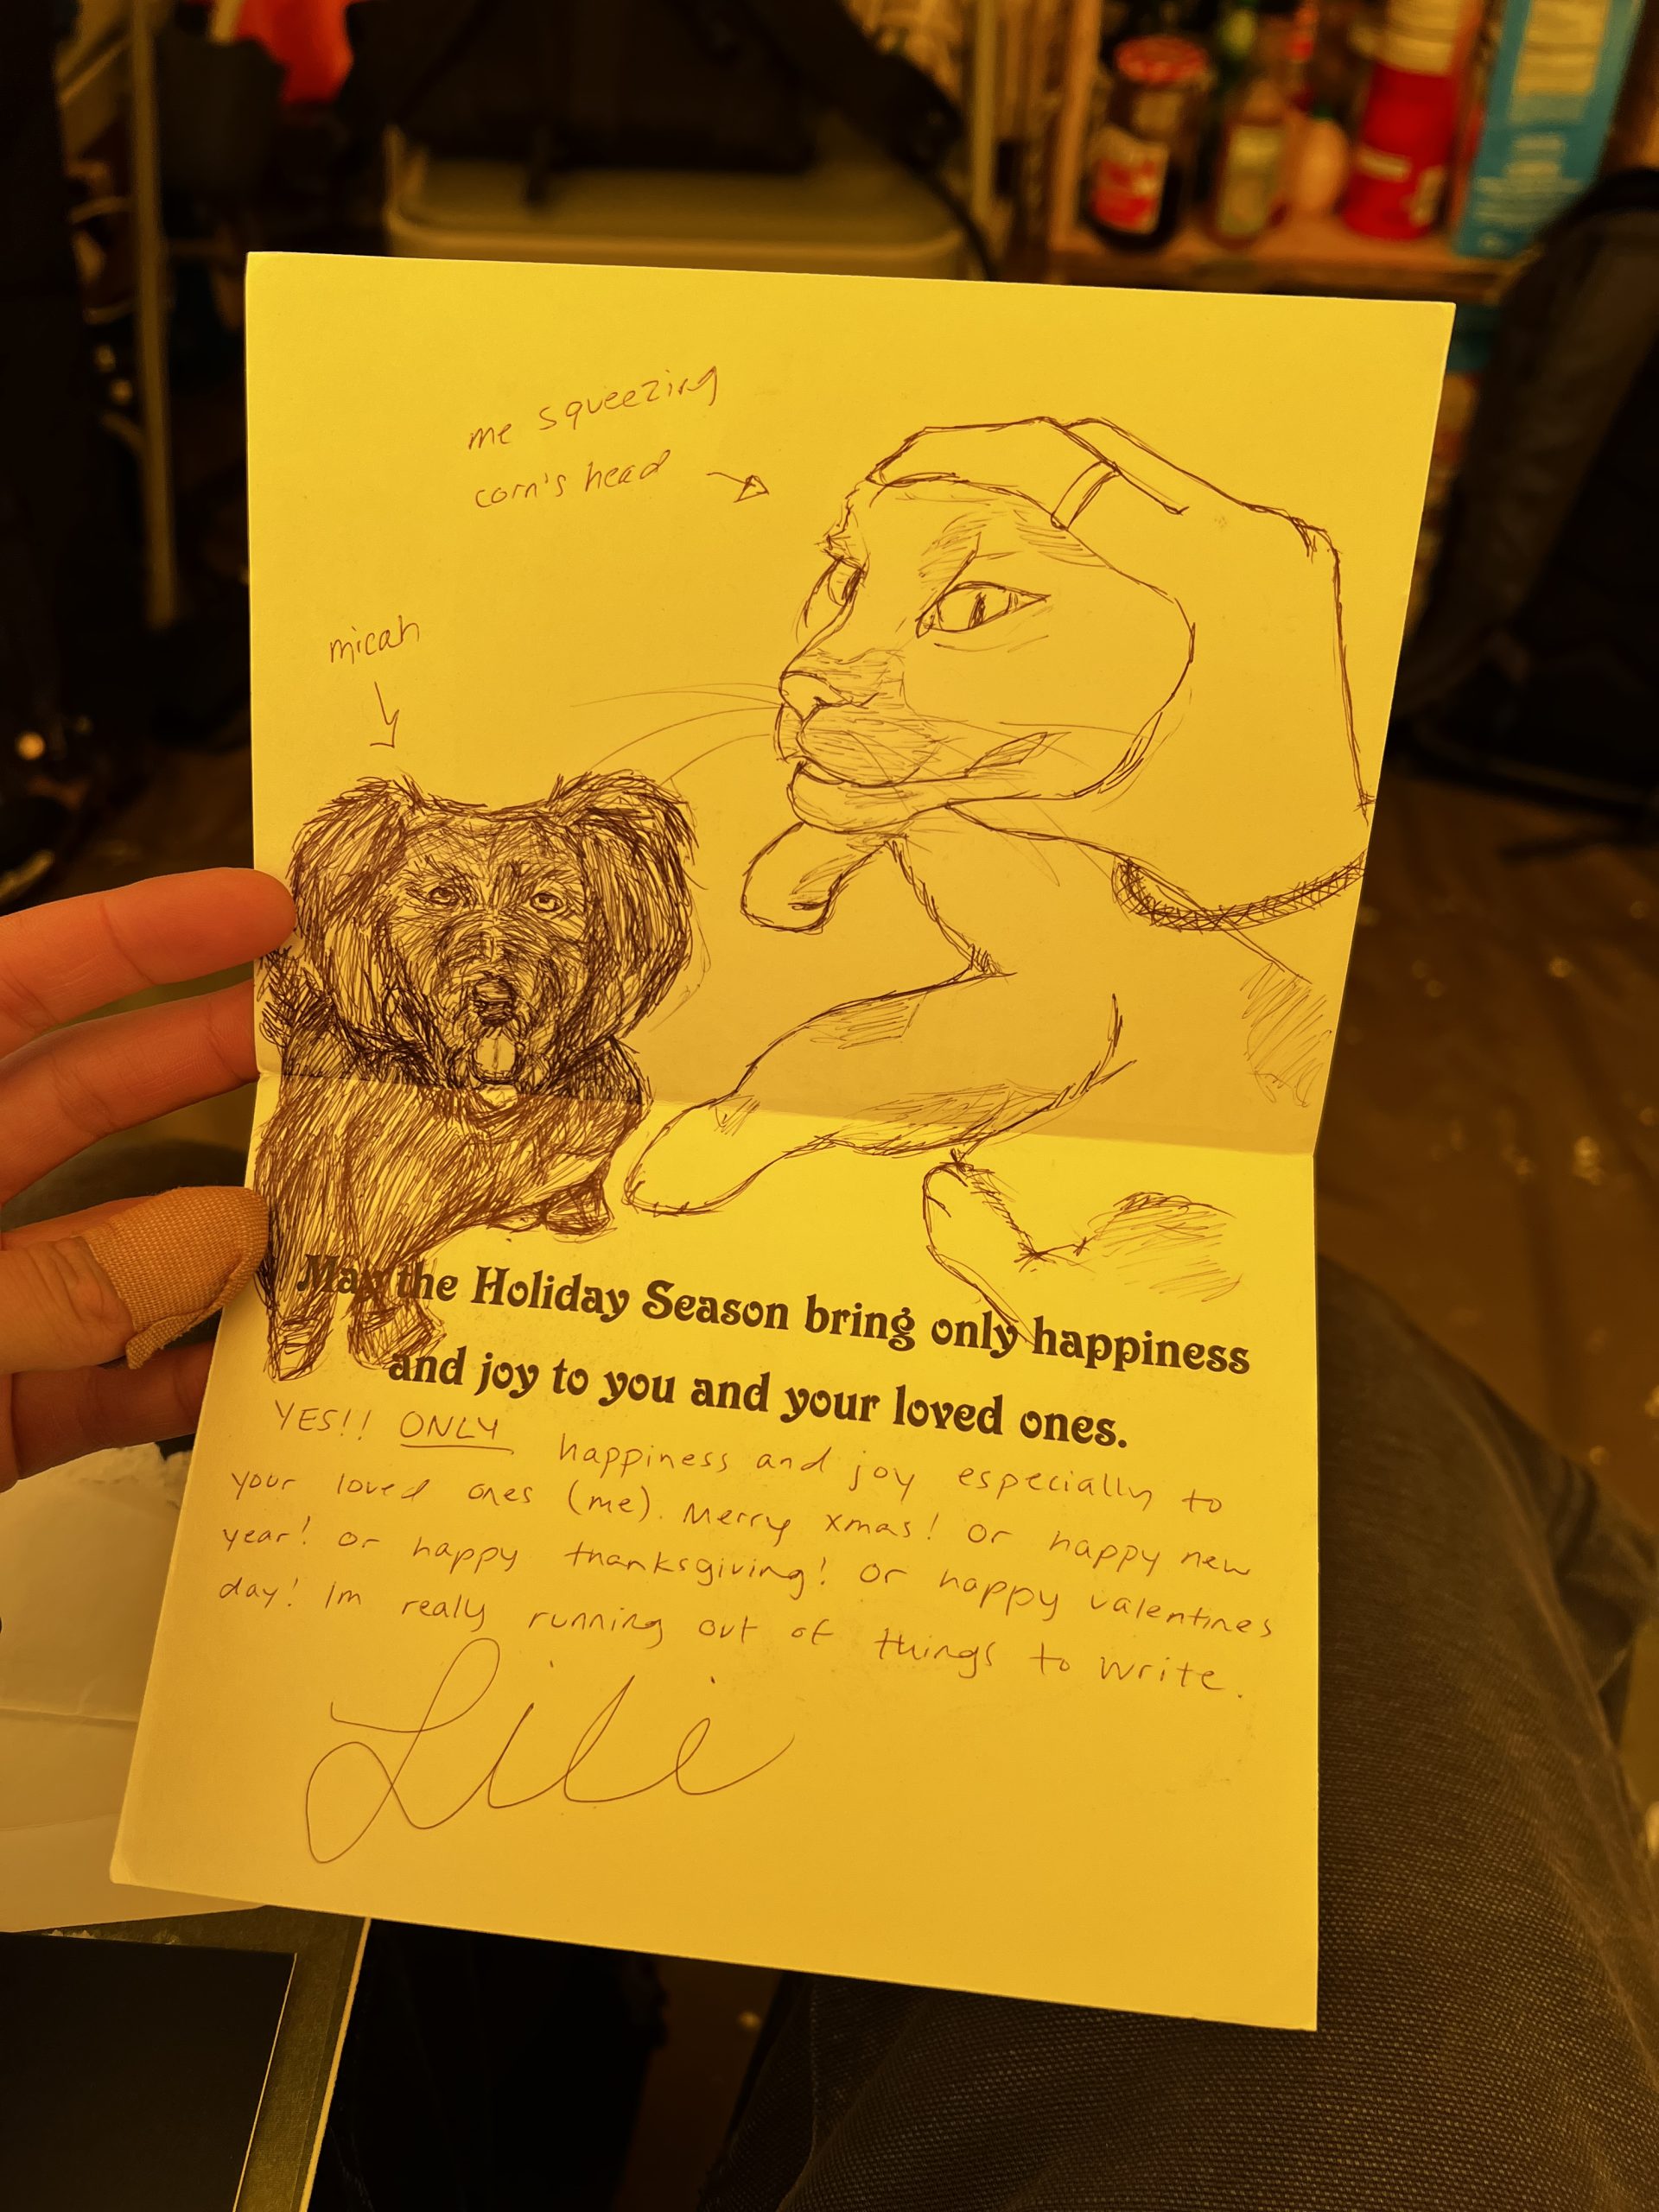 me squeezing
corn's head
micah
May the Holiday Season bring only happiness
and joy to you and your loved ones.
YES!! ONLY happiness and joy especially to
your loved ones (me). Merry xmas! Or happy new
year! or happy thanksgiving! Or happy valentines
day! Im really running out of things to write.
Lili